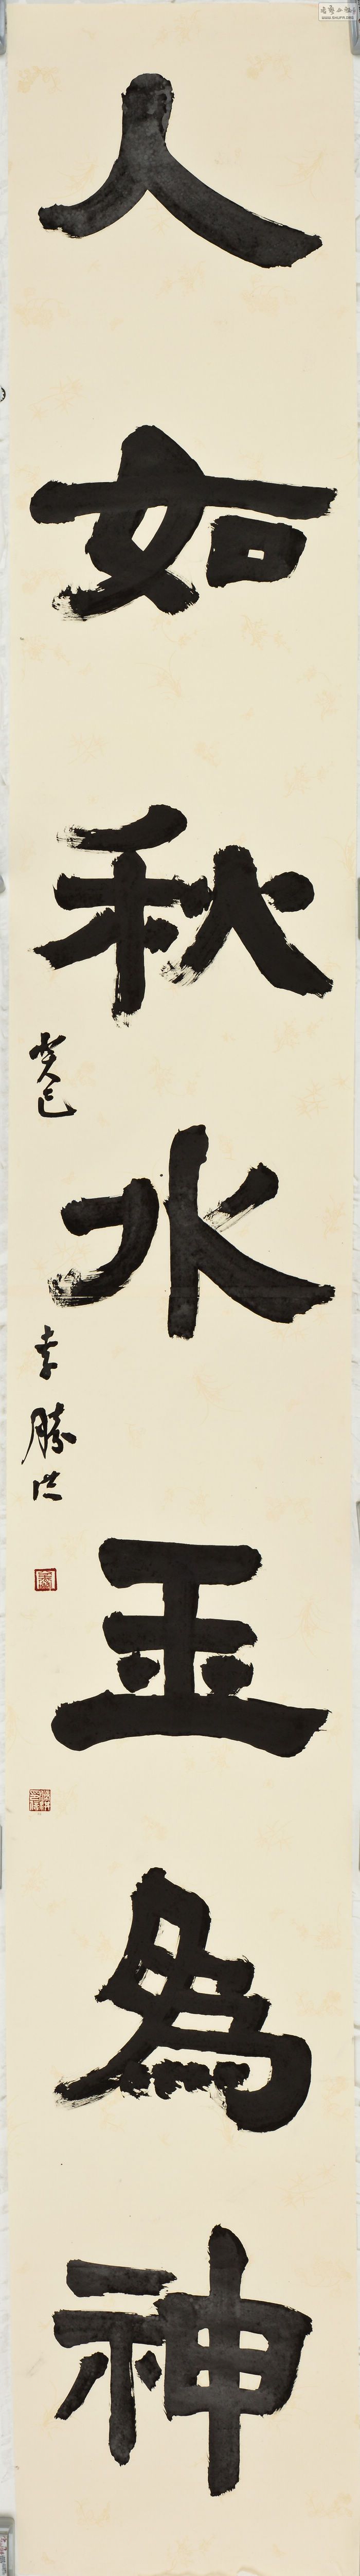 人如秋水玉為神
癸巳 勝洪